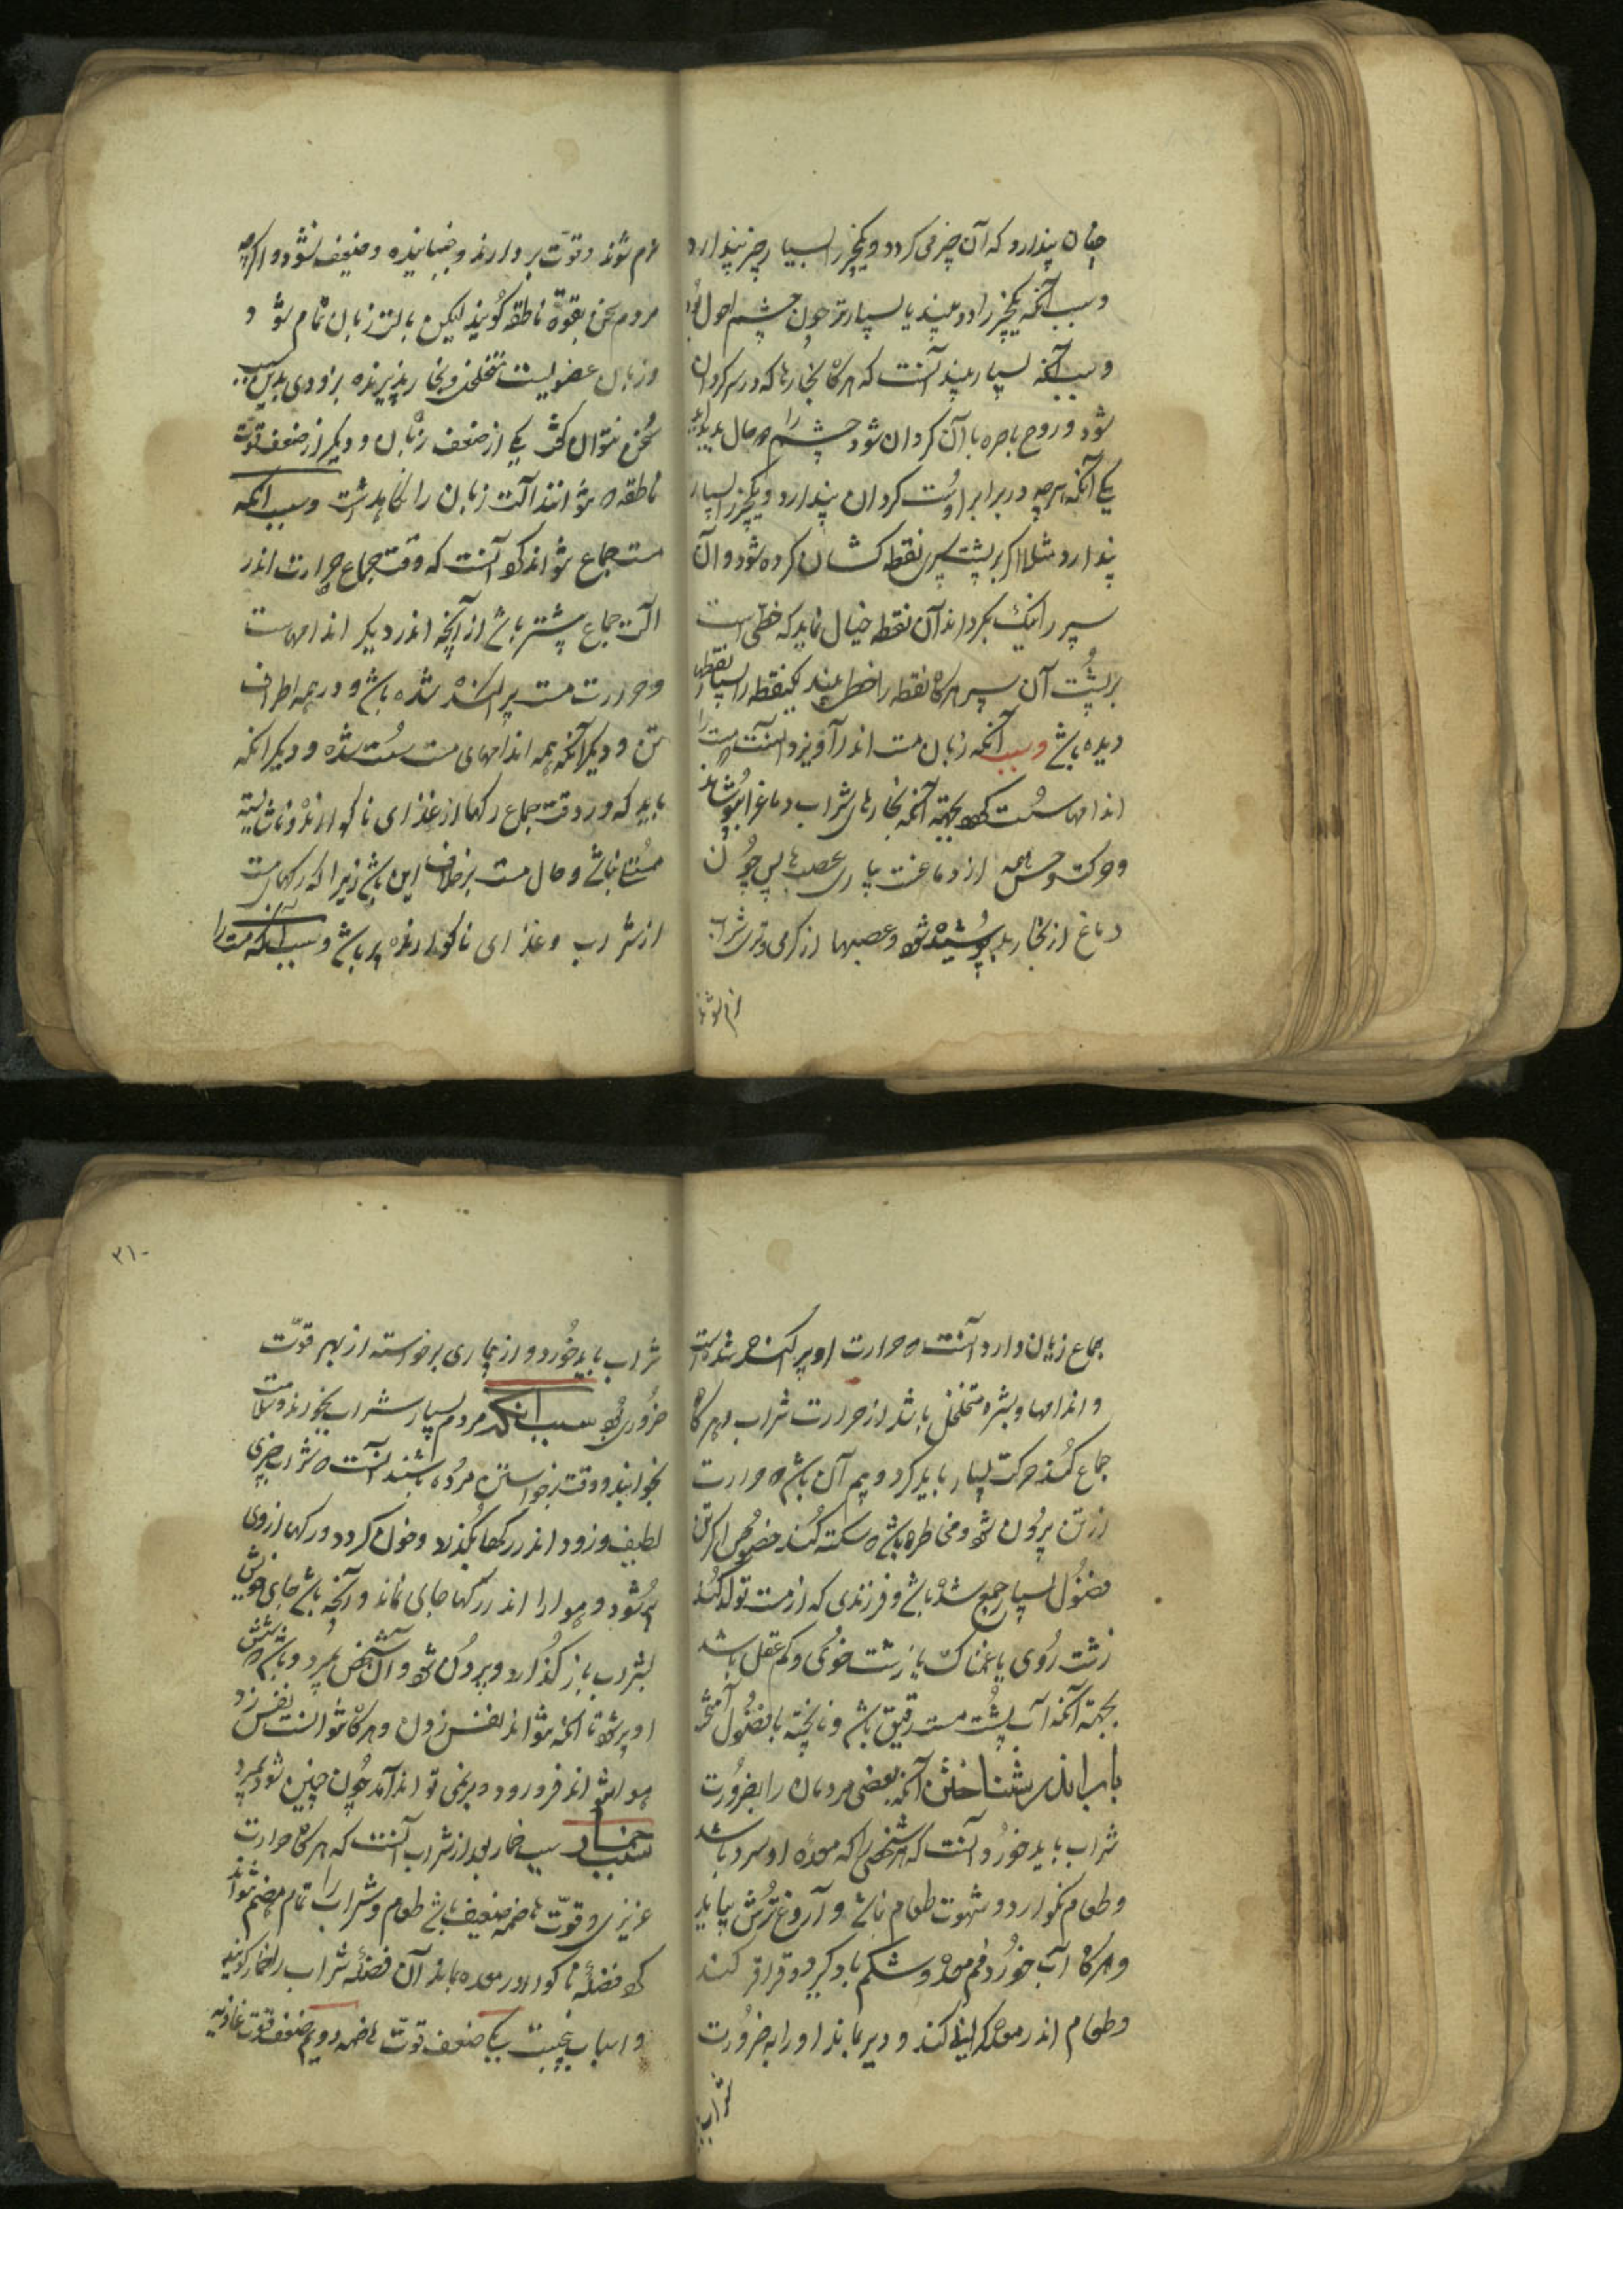 چنان پندارد که آن چیز می کردد و یکچیز را بسیار چیز پندارد
و سبب آنکه یکچیز را دو بیند یا بسیار تر چون چشم احول بود
و سبب آنکه بسیار بیند آنست که هرکاه بخارها که در سر کردان
شود و روح باصره با آن کردان شود چشم را دو حال بدید آید
یکی آنکه هرچه در برابر اوست کردان پندارد و یکچیز را بسیار
پندارد مثلا اکر بر پشت سپری نقطه نشان کرده شود و آن
سپر را نیک بکردانند آن نقطه خیال نماید که خطی است
بر پشت آن سپر هرکاه نقطه را خط بیند یکنقطه را بسیار نقطها
دیده باشد و سبب آنکه زبان مست اندر آویزد آنست مست را
اندامها سست کند بجهة آنکه بخارهای شراب دماغ را بپوشاند
و حرکت و حس همه از دماغست بیاری عصبها پس چون
دماغ از بخار بد پوشیده شود و عصبها از کرمی و تری شراب
نرم شوند
نرم شوند و قوت بردارند و جنباننده و ضعیف نشود و اکرچه
مردم سخن بقوة ناطقه کویند لیکن بالت زبان تمام شود
و زبان عضویست متخلخل و بخار پذیرنده بزودی بدین سبب
سخن نتوان کفت یکی از ضعف زبان و دیکر از ضعف قوت
ناطقه که نتواند آلت زبان را نکاهداشت و سبب آنکه
مست جماع نتواند کرد آنست که وقت جماع حرارت اندر
آلت جماع بیشتر باشد از آنچه اندر دیکر اندامهاست
و حرارت مست پراکنده شده باشد و در همه اطراف
تن و دیکر آنکه همه اندامهای مست سست شده و دیکر آنکه
باید که در وقت جماع رکها از غذای ناکوارنده و ناشایسته
ممتلی نباشد و حال مست برخلاف این باشد زیرا که رکها مست
از شراب و غذای ناکوارنده پر باشد و سبب آنکه مست را
جماع زیان دارد آنست که حرارت او پراکنده شده است
و اندامها و بشره متخلخل باشد از حرارت شراب و هرکاه
جماع کند حرکت بسیار باید کرد و بیم آن باشد که حرارت
از تن بیرون شود و مخاطره باشد که سکته کند خصوص اکر تن
فضول بسیار جمع شده باشد و فرزندی که از مست تولد کند
زشت روی یا غمناک یا زشت خوی و کم عقل باشد
بجهة آنکه آب پشت مست رقیق باشد و ناپخته با فضول آمیخته
باب اندر شناختن آنکه بعضی مردمان را بضرورت
شراب باید خورد آنست که هر شخصی را که معده او سرد باشد
و طعام نکوارد و شهوت طعام نباشد و آروغ ترش بیاید
و هرکاه آب خورد فم معده و شکم باد کیرد و قراقر کند
و طعام اندر معده کرانی کند و دیر بماند او را به ضرورت
شراب باید
۳۱۰
شراب باید خورد و از بیماری برخواسته از بهر قوت
ضروری بود سبب آنکه مردم بسیار شراب بخورند و سلامت
بخوابند و وقت برخواستن مرده باشند آنست که شراب چیزی
لطیف و زود اندر رکها بکذرد و خون کردد و رکها از وی
پر شود و هوا را اندر رکها جای نماند و آنچه باشد جای خویش
بشراب باز کذارد و بیرون شود و آن شخص بمیرد و باشد که شش
او پر شود تا آنکه نتواند نفس زدن و هرکاه نتوانست نفس زد
هوا نتواند فرو رود و بر نمی تواند آمد چون چنین شود بمیرد
سبب خمار سبب خمار بعد از شراب آنست که هرکاه حرارت
غریزی و قوت هاضمه ضعیف باشد طعام و شراب را تمام هضم نتواند
کرد فضلهٔ ناکوار در معده بماند آن فضلهٔ شراب را خمار کویند
و اسباب پنجست یکی ضعف قوت هاضمه دویم ضعف قوت غاذیه